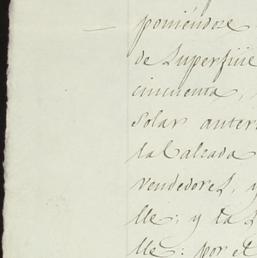 poniéndose
de Superficie
cincuenta,
Solar anter
la Calzada
vendedores, y
lle; y la S
lle: por el